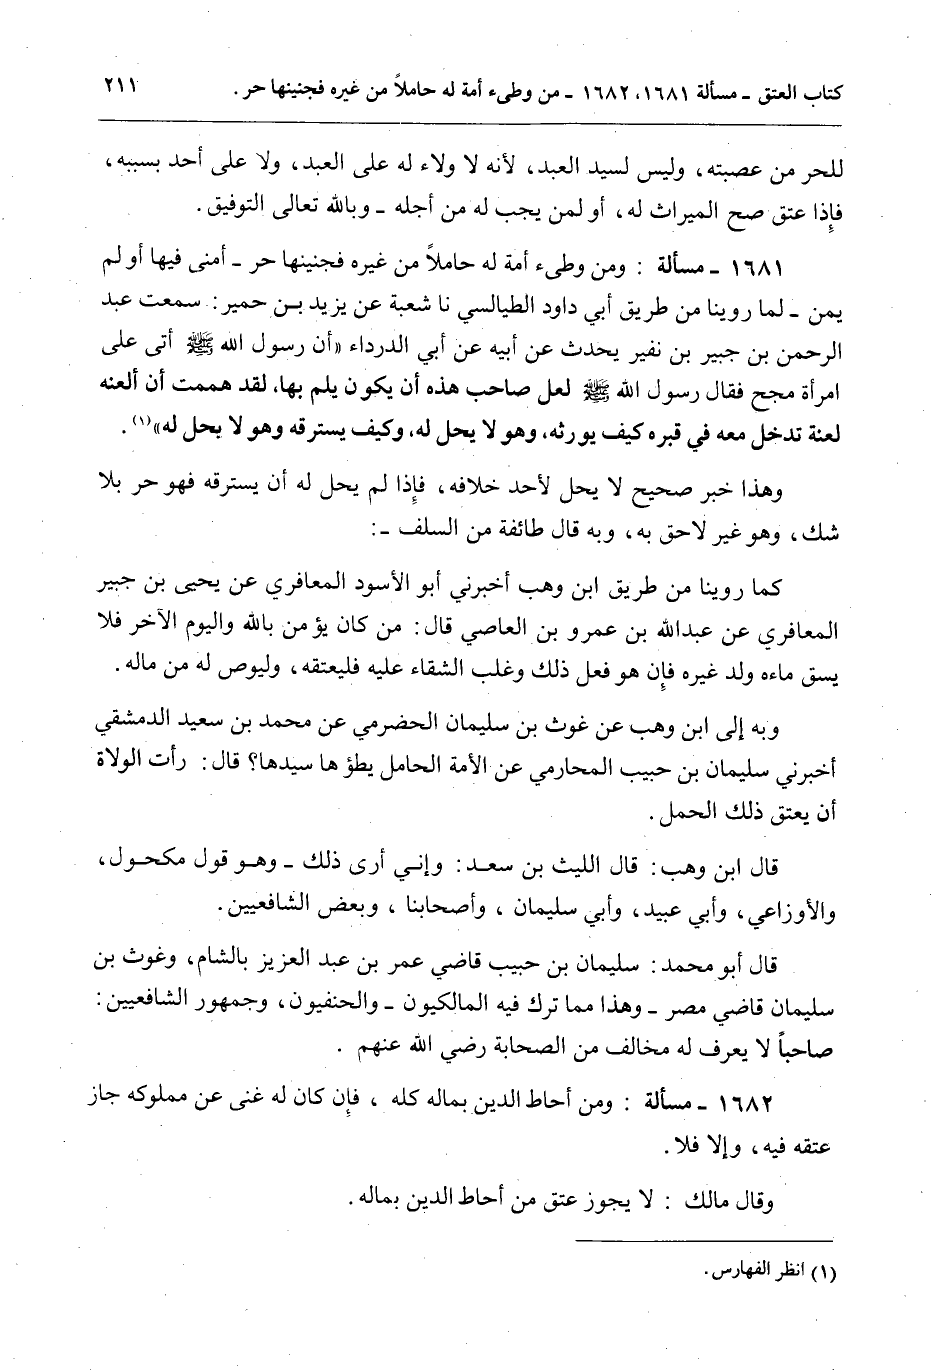 كتاب العتق ـ مسألة ١٦٨١، ١٦٨٢ ـ من وطىء أمة له حاملاً من غيره فجنينها حر. ٢١١
للحر من عصبته، وليس لسيد العبد، لأنه لا ولاء له على العبد، ولا على أحد بسببه،
فإذا عتق صح الميراث له، أو لمن يجب له من أجله ـ وبالله تعالى التوفيق.
١٦٨١ ـ مسألة : ومن وطىء أمة له حاملاً من غيره فجنينها حر ـ أمنى فيها أو لم
يمن ـ لما روينا من طريق أبي داود الطيالسي نا شعبة عن يزيد بـن حمير: سمعت عبد
الرحمن بن جبير بن نفير يحدث عن أبيه عن أبي الدرداء «أن رسول الله ﷺ أتى على
امرأة مجح فقال رسول الله ﷺ لعل صاحب هذه أن يكون يلم بها، لقد هممت أن ألعنه
لعنة تدخل معه في قبره كيف يورثه، وهو لا يحل له، وكيف يسترقه وهو لا يحل له»(١).
وهذا خبر صحيح لا يحل لأحد خلافه، فإذا لم يحل له أن يسترقه فهو حر بلا
شك، وهو غير لاحق به، وبه قال طائفة من السلف ـ:
كما روينا من طريق ابن وهب أخبرني أبو الأسود المعافري عن يحيى بن جبير
المعافري عن عبدالله بن عمرو بن العاصي قال: من كان يؤمن بالله واليوم الآخر فلا
يسق ماءه ولد غيره فإن هو فعل ذلك وغلب الشقاء عليه فليعتقه، وليوص له من ماله.
وبه إلى ابن وهب عن غوث بن سليمان الحضرمي عن محمد بن سعيد الدمشقي
أخبرني سليمان بن حبيب المحارمي عن الأمة الحامل يطؤها سيدها؟ قال: رأت الولاة
أن يعتق ذلك الحمل.
قال ابن وهب: قال الليث بن سعـد: وإنـي أرى ذلك ـ وهـو قول مكحـول،
والأوزاعي، وأبي عبيد، وأبي سليمان ، وأصحابنا ، وبعض الشافعيين.
قال أبو محمد: سليمان بن حبيب قاضي عمر بن عبد العزيز بالشام، وغوث بن
سليمان قاضي مصر ـ وهذا مما ترك فيه المالكيون ـ والحنفيون، وجمهور الشافعيين:
صاحباً لا يعرف له مخالف من الصحابة رضي الله عنهم .
١٦٨٢ ـ مسألة : ومن أحاط الدين بماله كله ، فإن كان له غنى عن مملوكه جاز
عتقه فيه، وإلا فلا.
وقال مالك : لا يجوز عتق من أحاط الدين بماله.
(١) انظر الفهارس.